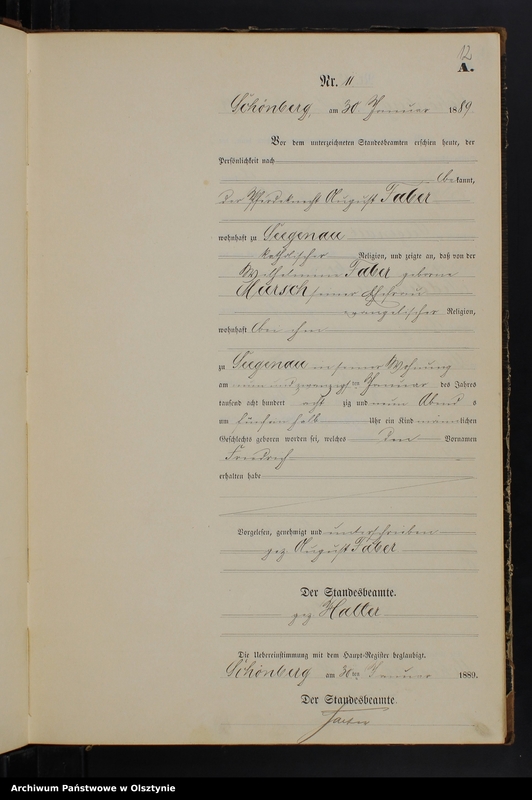 12
A.
Nr. 11
Schönberg, am 30 Januar 1889
Vor dem unterzeichneten Standesbeamten erschien heute, der
Persönlichkeit nach
bekannt,
der Pferdeknecht August Taber
wohnhaft zu Seegenau
katholischer Religion, und zeigte an, daß von der
Wilhelmine Taber geborne
Mursch seiner Ehefrau
evangelischer Religion,
wohnhaft bei ihm
zu Seegenau in seiner Wohnung
am neun und zwanzigsten Januar des Jahres
tausend acht hundert acht zig und neun Abend s
um fünfeinhalb Uhr ein Kind männlichen
Geschlechts geboren worden sei, welches den Vornamen
Friedrich
erhalten habe
Vorgelesen, genehmigt und unterschrieben
gez August Taber
Der Standesbeamte.
gez Haller
Die Uebereinstimmung mit dem Haupt-Register beglaubigt.
Schönberg am 30ten Januar 1889.
Der Standesbeamte
Archiwum Państwowe w Olsztynie